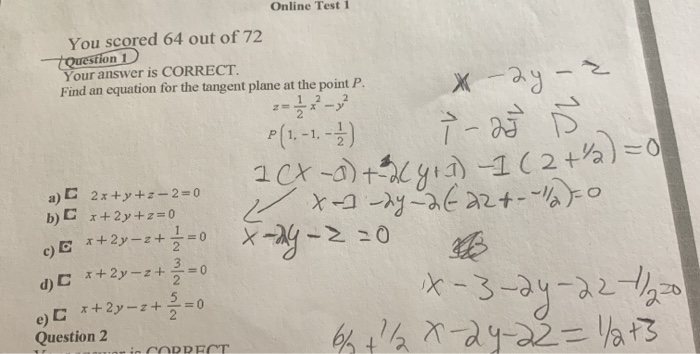 Online Test 1
You scored 64 out of 72
Question 1
Your answer is CORRECT.
Find an equation for the tangent plane at the point P.
z = 1/2 x² − y²
P(1, −1, −1/2)
a) 2x + y + z − 2 = 0
b) x + 2y + z = 0
c) x + 2y − z + 1/2 = 0
d) x + 2y − z + 3/2 = 0
e) x + 2y − z + 5/2 = 0
Question 2
CORRECT
x − 2y − z
1(x − 1) + 2(y + 1) − 1(2 + 1/2) = 0
x − 2y − z = 0
x − 3 − 2y − 2z − 1/2 = 0
x − 2y − 2z = 1/2 + 3